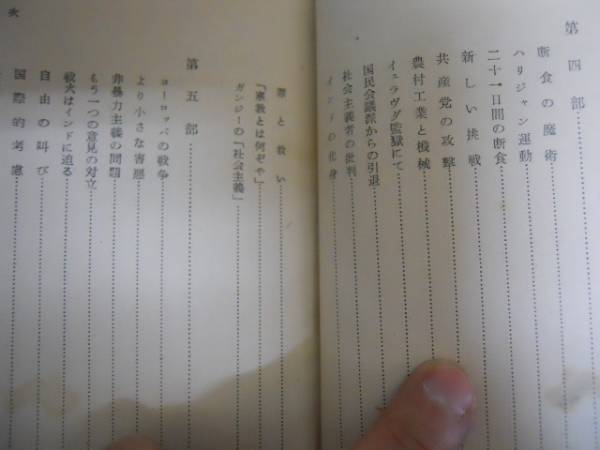 第四部
断食の魔術
ハリジャン運動
二十一日間の断食
新しい挑戦
共産党の攻撃
農村工業と機械
イェラヴダ監獄にて
国民会議派からの引退
社会主義者の批判
インドの化身
罪と救い
「宗教とは何ぞや」
ガンジーの「社会主義」
第五部
ヨーロッパの戦争
より小さな害悪
非暴力主義の問題
もう一つの意見の対立
戦火はインドに迫る
自由の叫び
国際的考慮
次